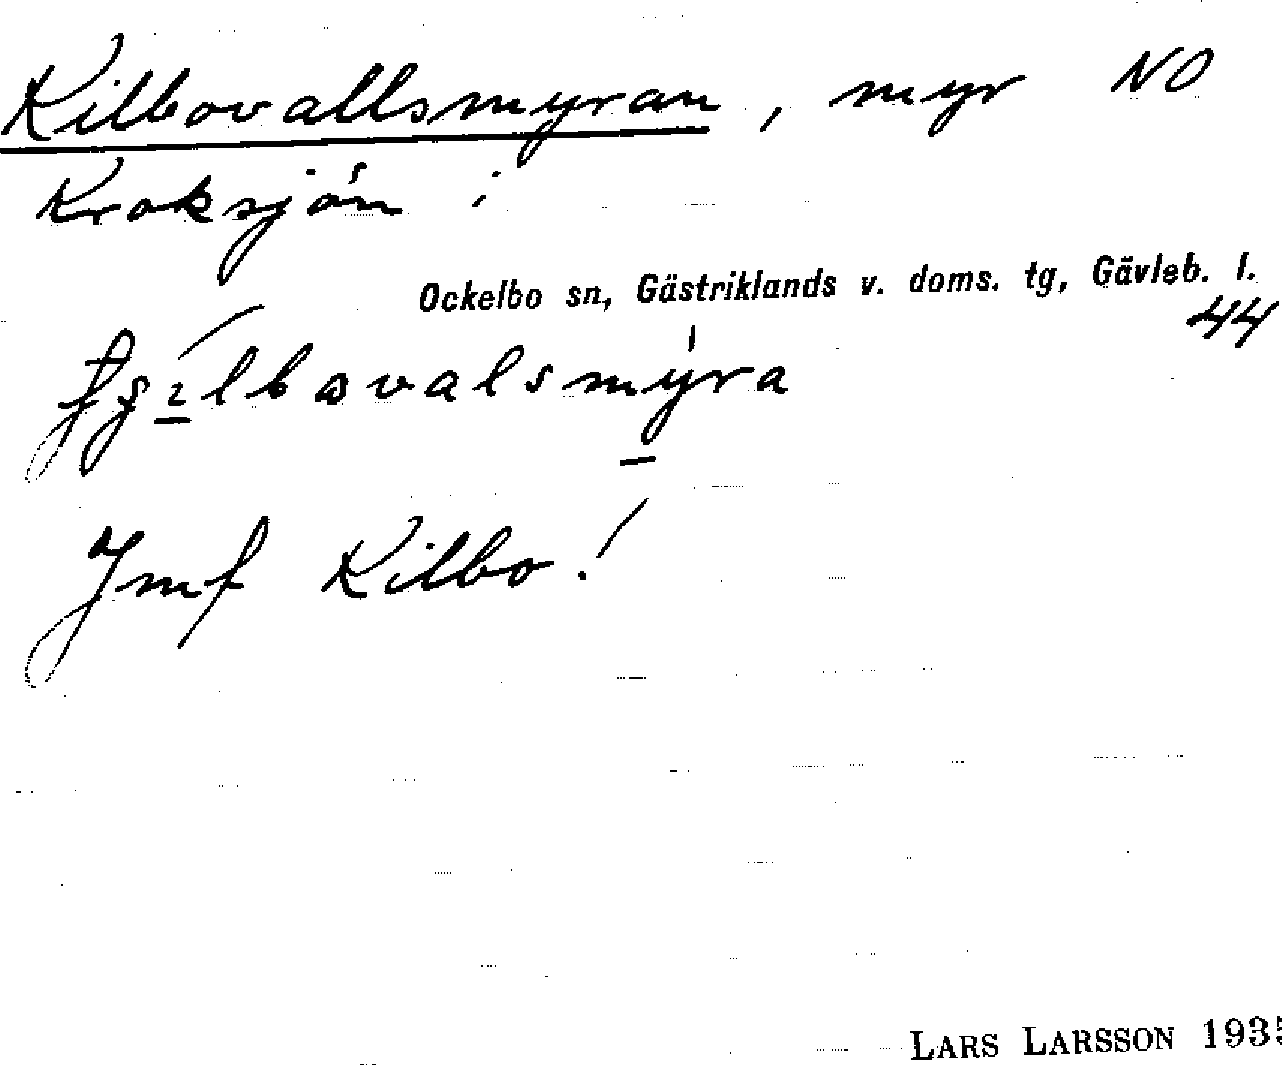 Kilbovallsmyran, myr NO
Kroksjön i
Ockelbo sn, Gästriklands v. doms. tg, Gävleb. l.
44
Jmf Kilbo!
LARS LARSSON 1935